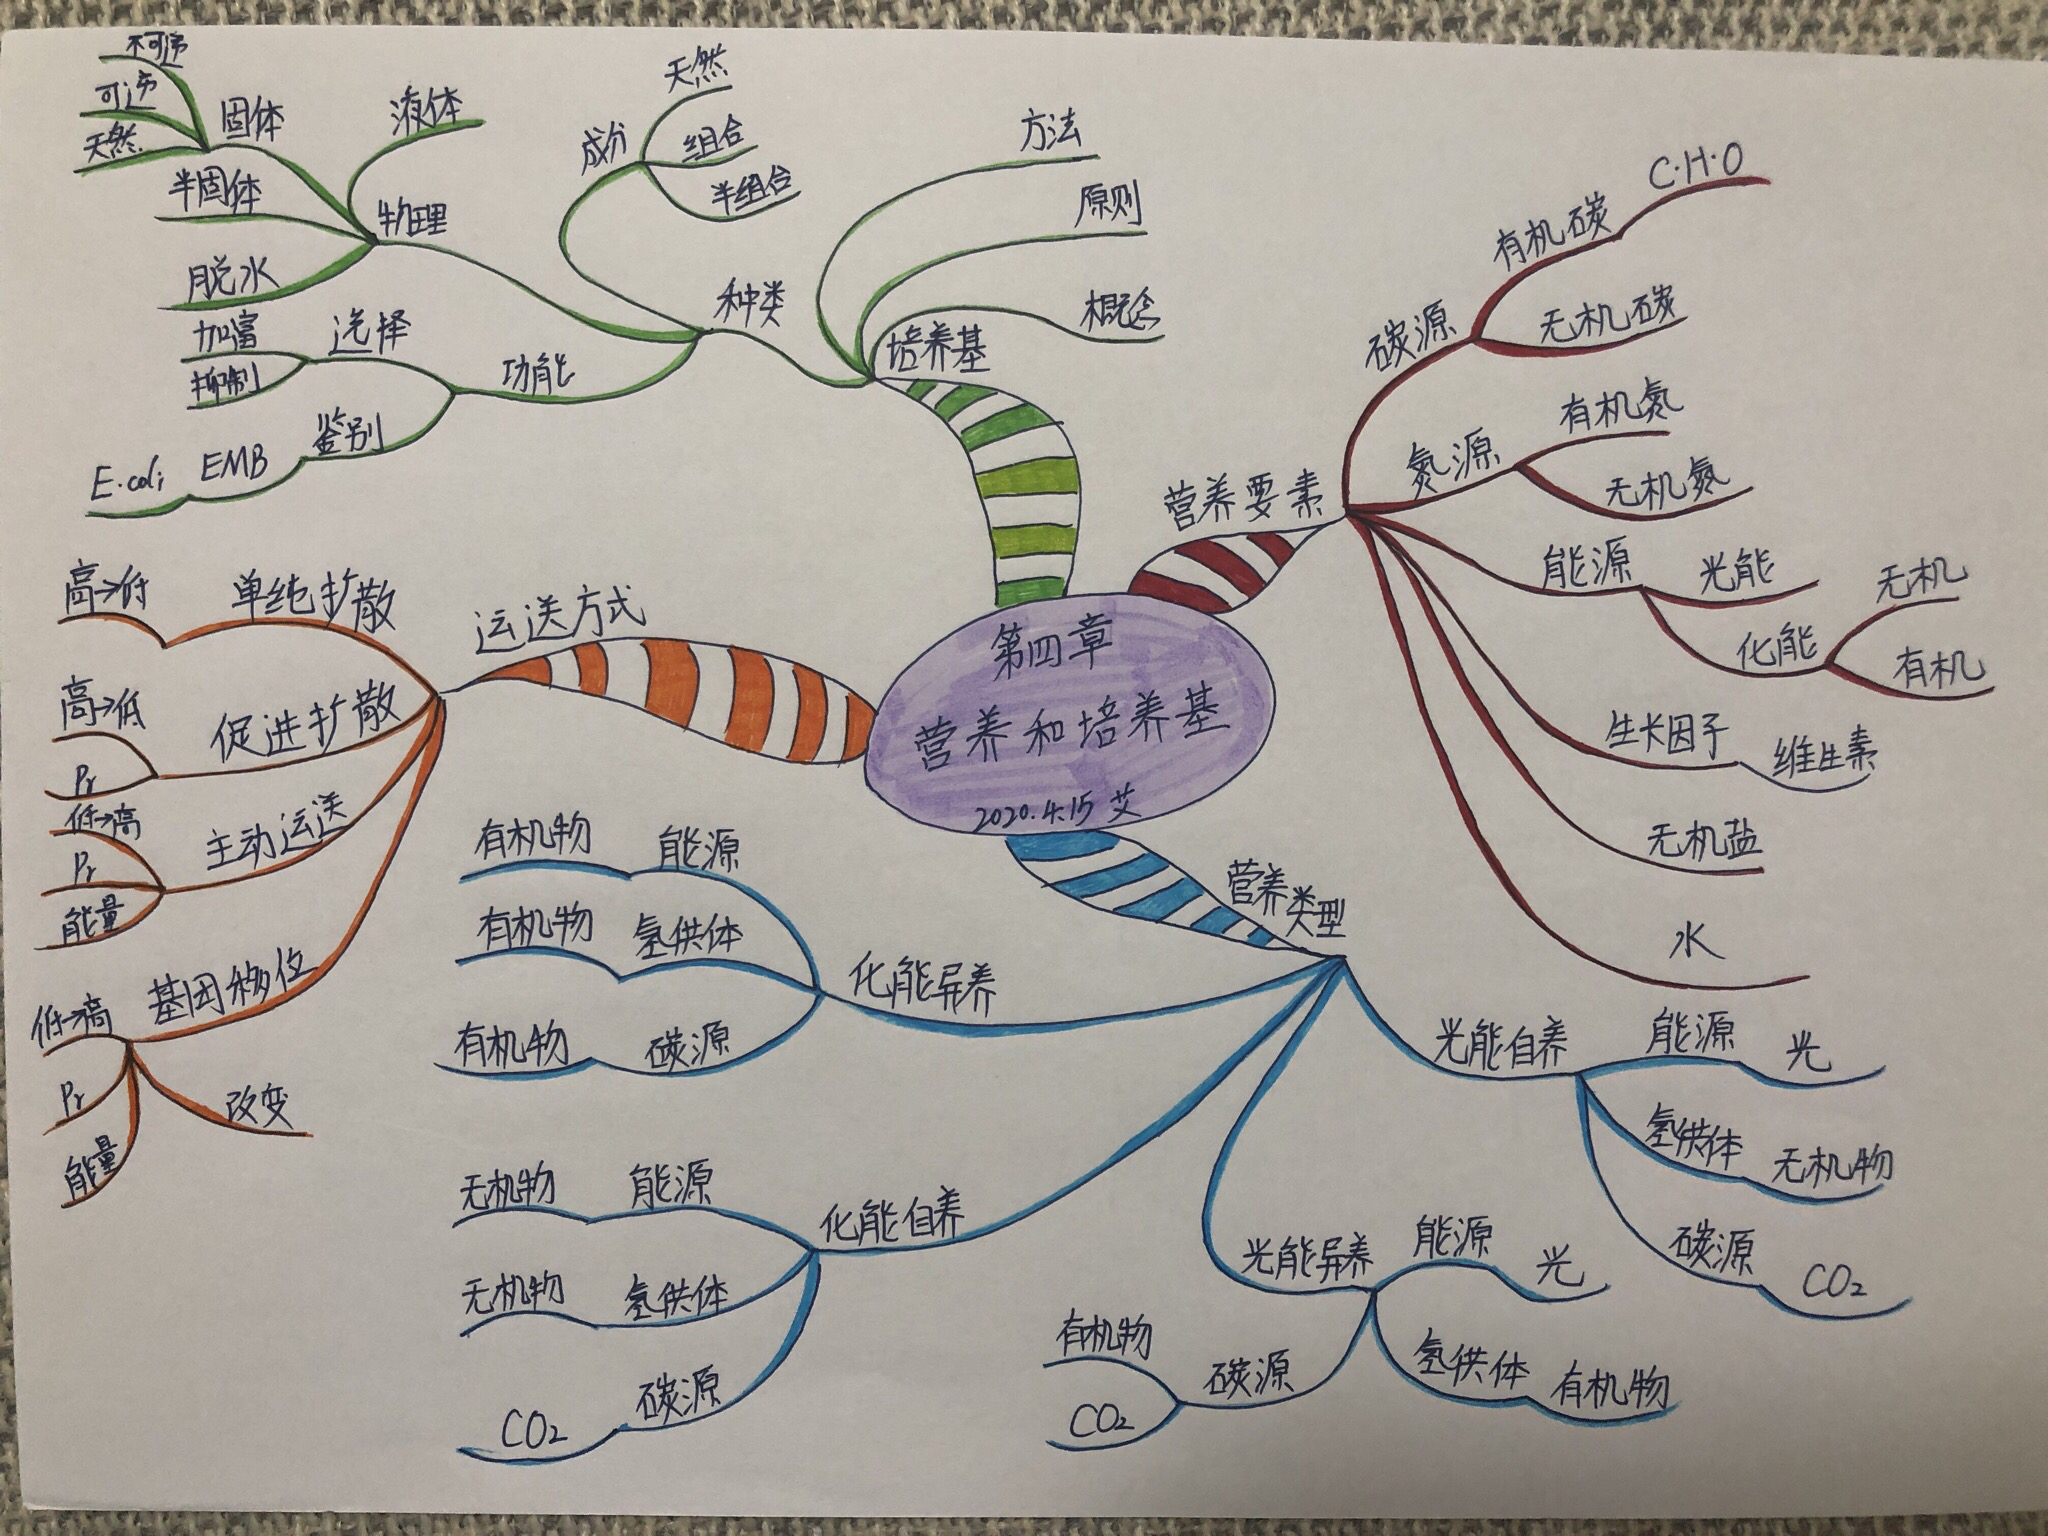 第四章
营养和培养基
2020.4.15 艾
营养要素
碳源
有机碳
C·H·O
无机碳
氮源
有机氮
无机氮
能源
光能
化能
无机
有机
生长因子
维生素
无机盐
水
营养类型
光能自养
能源
光
氢供体
无机物
碳源
CO₂
光能异养
能源
光
氢供体
有机物
碳源
有机物
CO₂
化能自养
能源
无机物
氢供体
无机物
碳源
CO₂
化能异养
能源
有机物
氢供体
有机物
碳源
有机物
运送方式
单纯扩散
高→低
促进扩散
高→低
Pr
主动运送
低→高
Pr
能量
基团移位
低→高
Pr
能量
改变
培养基
概念
原则
方法
种类
成分
天然
组合
半组合
物理
液体
固体
不可逆
可逆
天然
半固体
脱水
功能
选择
加富
抑制
鉴别
EMB
E.coli